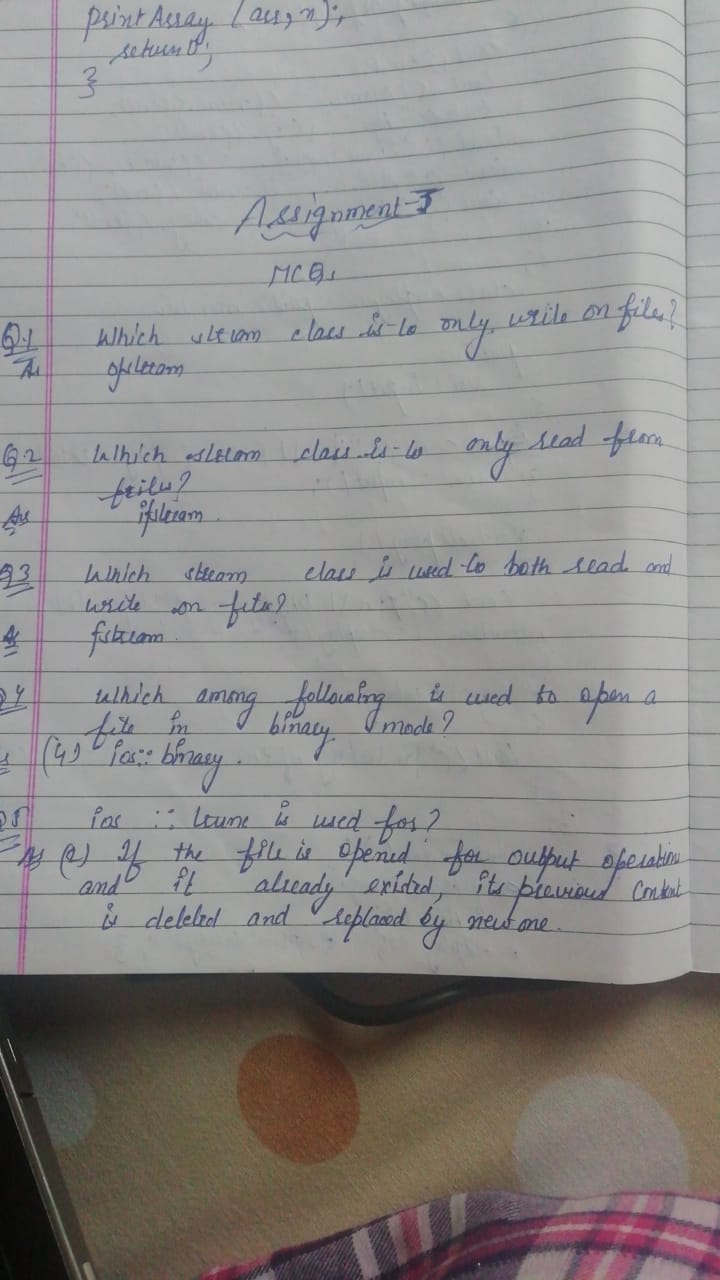 printArray (arr, n);
return 0;
}
Assignment-5
MCQs
Q.1 Which stream class is to only write on files?
As ofstream
Q.2 Which stream class is to only read from
files?
As ifstream
Q3 Which stream class is used to both read and
write on files?
As fstream
Q4 Which among following is used to open a
file in binary mode?
As (4) ios:: binary.
Q5 ios :: trunc is used for?
As (a) If the file is opened for output operations
and it already existed, its previous content
is deleted and replaced by new one.